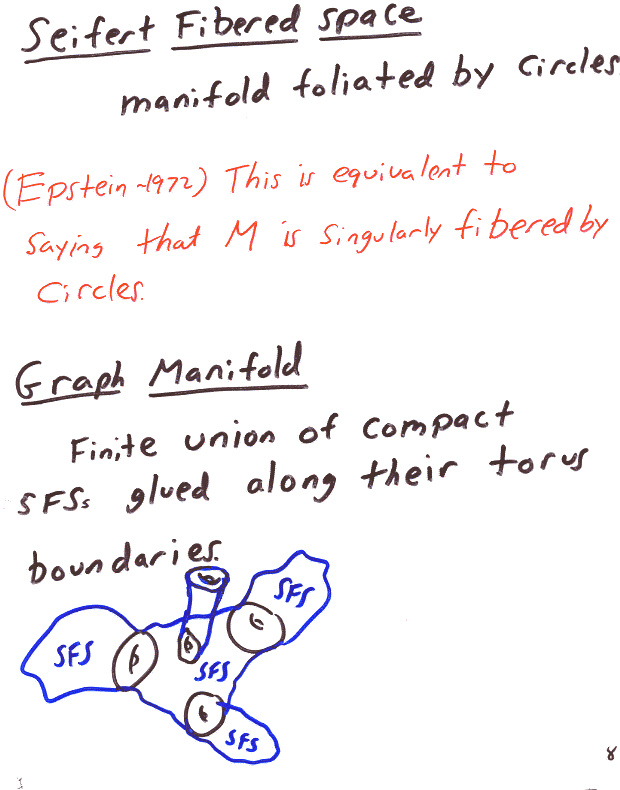 Seifert Fibered space
manifold foliated by circles
(Epstein ~1972) This is equivalent to
saying that M is singularly fibered by
circles.
Graph Manifold
Finite union of compact
SFSs glued along their torus
boundaries.
SFS
SFS
SFS
SFS
8